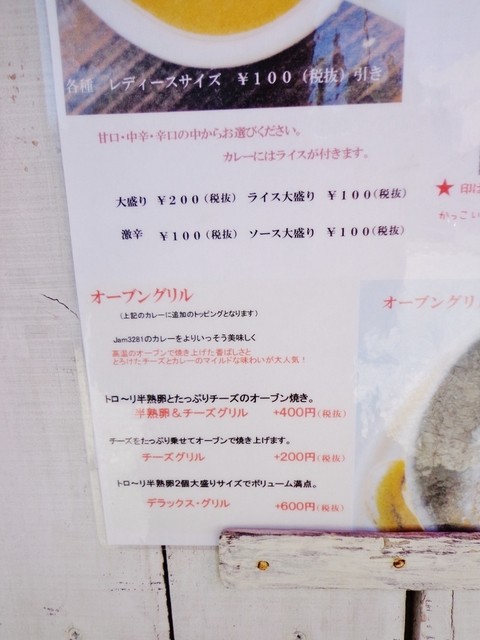 各種 レディースサイズ ¥100(税抜)引き
甘口・中辛・辛口の中からお選びください。
カレーにはライスが付きます。
大盛り ¥200(税抜) ライス大盛り ¥100(税抜)
激辛 ¥100(税抜) ソース大盛り ¥100(税抜)
★印は
かっこい
オーブングリル
(上記のカレーに追加のトッピングとなります)
Jam3281のカレーをよりいっそう美味しく
高温のオーブンで焼き上げた香ばしさと
とろけたチーズとカレーのマイルドな味わいが大人気!
トロ〜リ半熟卵とたっぷりチーズのオーブン焼き。
半熟卵&チーズグリル +400円(税抜)
チーズをたっぷり乗せてオーブンで焼き上げます。
チーズグリル +200円(税抜)
トロ〜リ半熟卵2個大盛りサイズでボリューム満点。
デラックス・グリル +600円(税抜)
オーブングリ